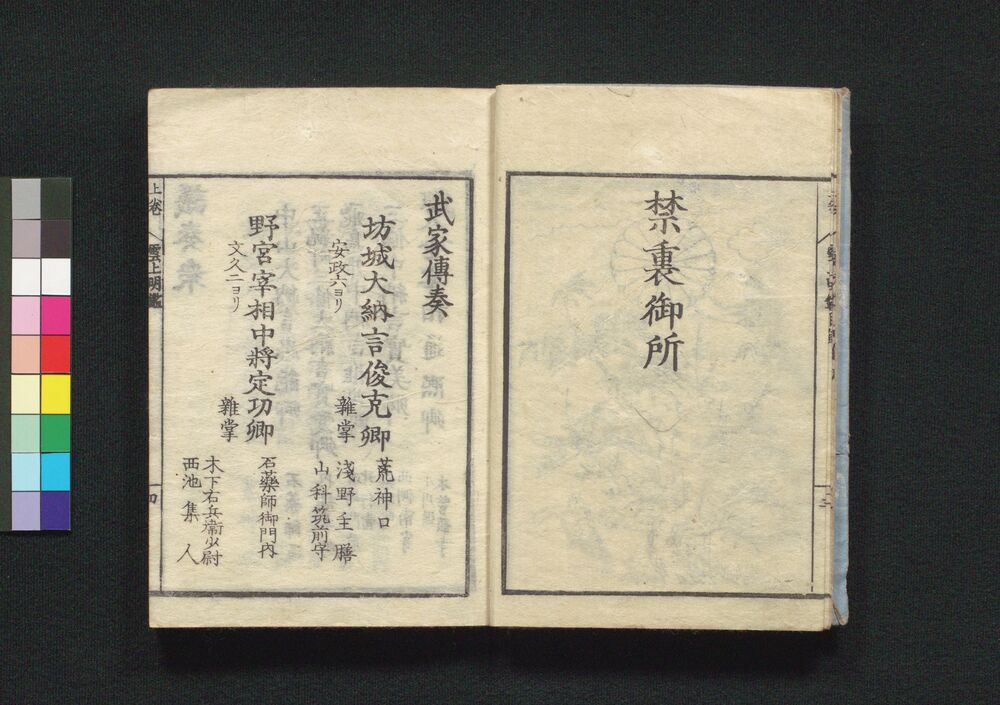 禁裏御所
武家傳奏
坊城大納言俊克卿
荒神口
安政六ヨリ
雜掌
淺野主膳
山科筑前守
野宮宰相中將定功卿
石藥師御門内
文久二ヨリ
雜掌
木下右兵衞少尉
西池集人
上卷
雲上明鑑
四